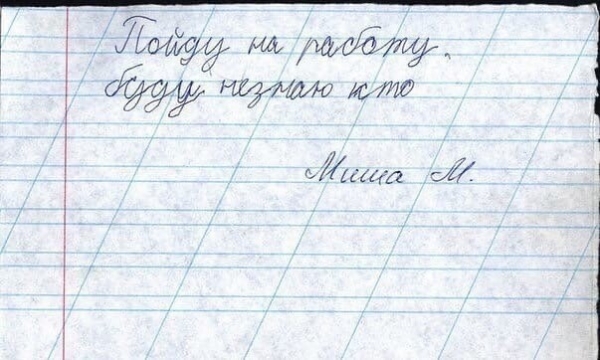 Пойду на работу.
буду незнаю кто
Миша М.